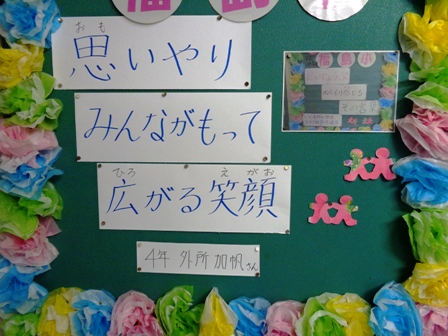 思いやり
おも
みんながもって
広がる笑顔
ひろ
えがお
4年 外所 加帆さん